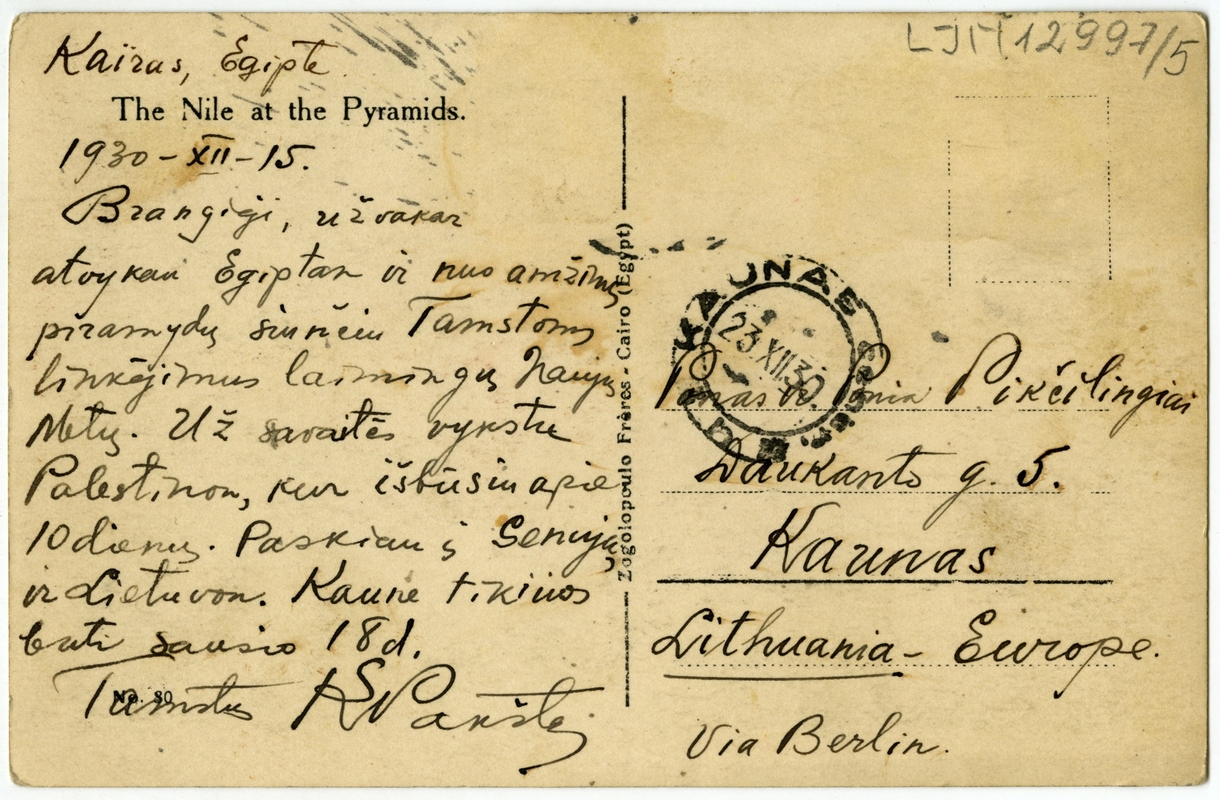 LJM 12997/5
Kairas, Egipte
The Nile at the Pyramids.
1930-XII-15.
Brangieji, užvakar
atvykau Egiptan ir nuo amžinų
piramydų siunčiu Tamstoms
linkėjimus laimingų Naujų
Metų. Už savaitės vykstu
Palestinon, kur išbūsiu apie
10 dienų. Paskiau į Seniją
ir Lietuvon. Kaune tikiuos
būti sausio 18 d.
Tamstų KSPakštas
No. 80
Zogolopoulo Frères - Cairo (Egypt)
KAUNAS
23 XII.30
Ponas ir Ponia Pikčilingiai
Daukanto g. 5.
Kaunas
Lithuania - Europe.
Via Berlin.